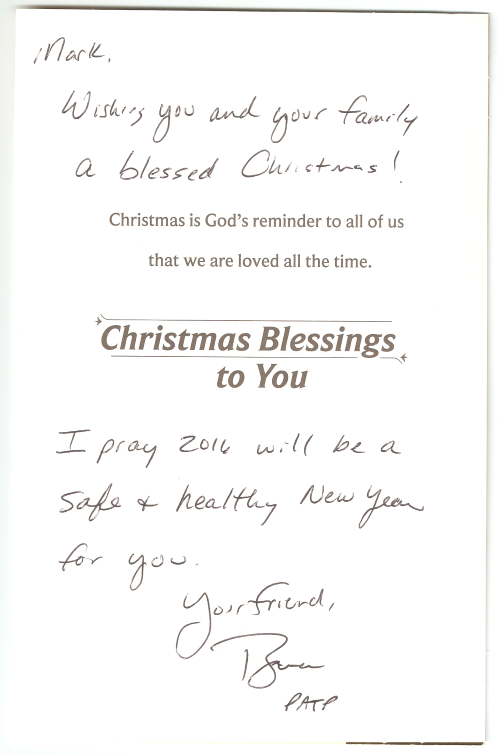 Mark,
Wishing you and your family
a blessed Christmas!
Christmas is God's reminder to all of us
that we are loved all the time.
Christmas Blessings
to You
I pray 2016 will be a
safe & healthy New Year
for you.
Your friend,
PATP